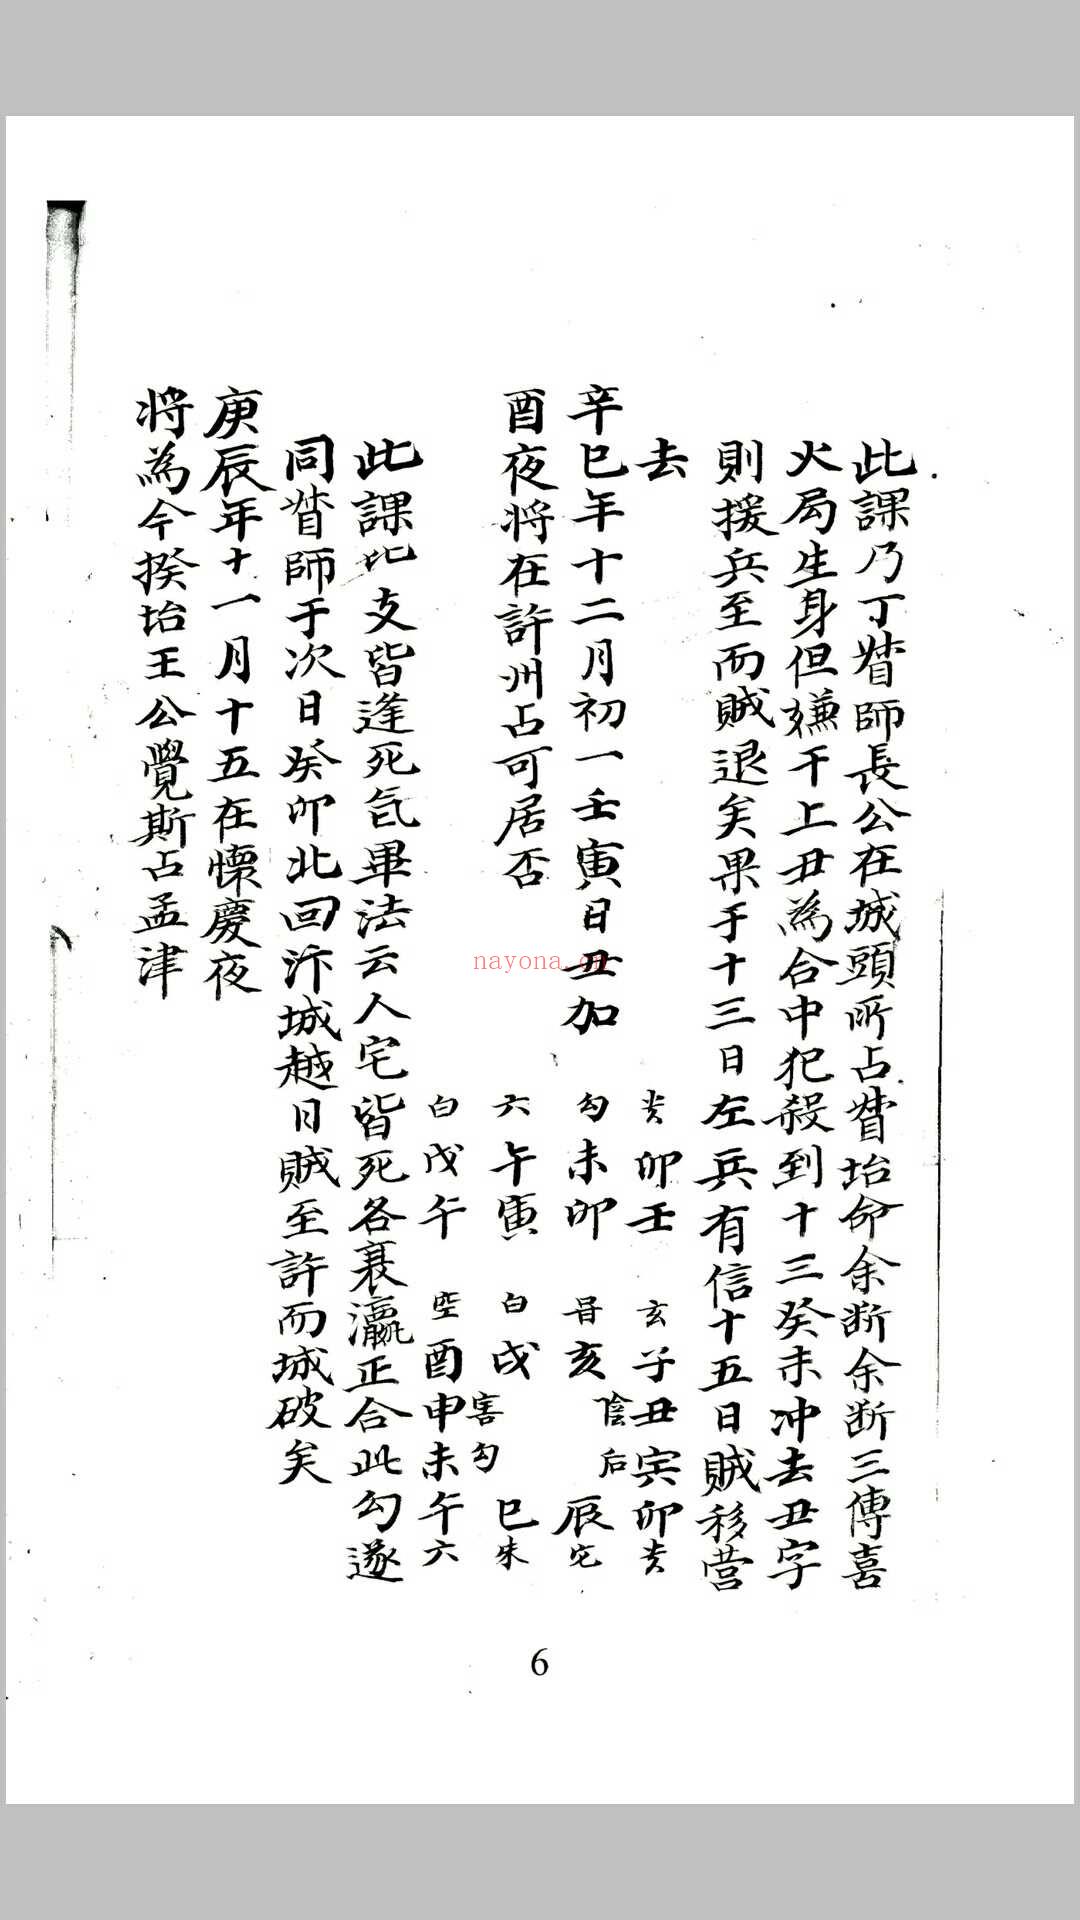 此課乃丁督師長公在城頭所占督抬命余断余断三傳喜
火局生身但嫌干上丑為合中犯殺到十三癸未冲去丑字
則援兵至而賊退矣果于十三日左兵有信十五日賊移营
去
辛巳年十二月初一壬寅日丑加
酉夜将在許州占可居否
贵卯壬 玄子丑寅卯贵
勾未卯 昼亥 陰后 辰
六午寅 白戌 勾 巳朱
白戊午 空酉申未午六
害
此課比支皆逢死气畢法云人宅皆死各衰瀛正合此勾遂
同督師于次日癸卯北回汴城越日賊至許而城破矣
庚辰年十一月十五在懷慶夜
将為今揆抬王公覺斯占孟津
nayona.cn
6